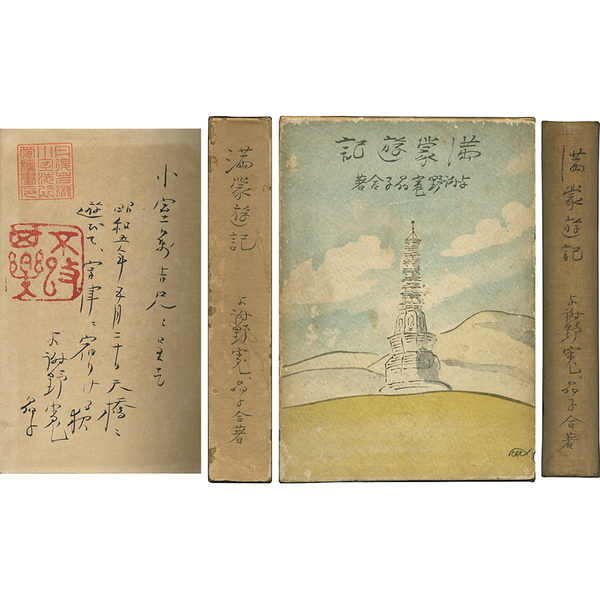 小室萬吉兄に呈す
昭和五年五月二十日天橋に
遊びて、宮津に宿りける夜
与謝野寛
晶子
満蒙遊記
与謝野寛、晶子合著
満蒙遊記
与謝野寛晶子合著
満蒙遊記
与謝野寛、晶子合著